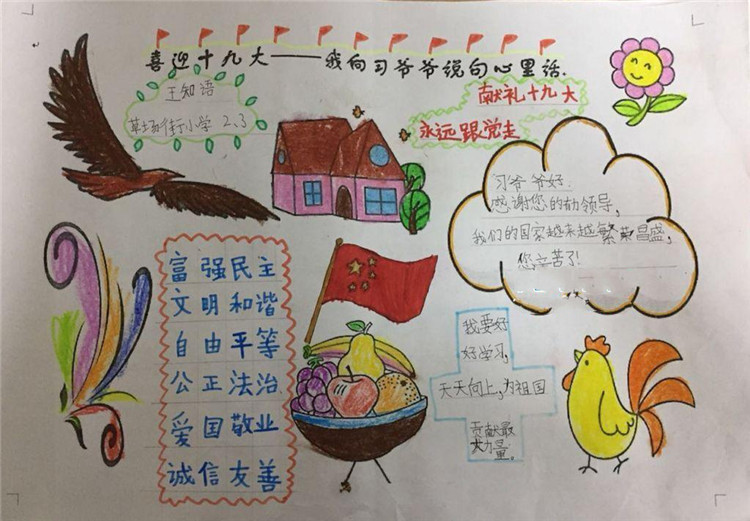 喜迎十九大——我向习爷爷说句心里话.
王知语
草场街小学 2.3
献礼十九大
永远跟党走
习爷爷好.
感谢您的领导,
我们的国家越来越繁荣昌盛,
您辛苦了!
富强民主
文明和谐
自由平等
公正法治
爱国敬业
诚信友善
我要好
好学习,
天天向上,为祖国
贡献最
大力量.